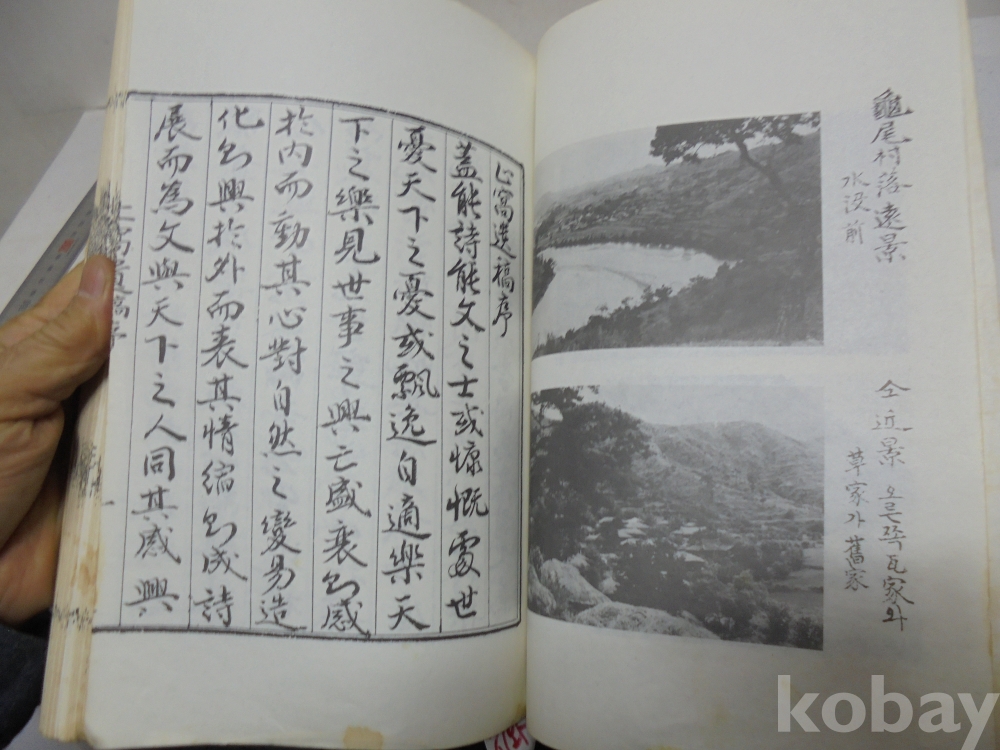 龜尾村落遠景
水没前
仝近景 오른쪽瓦家와
草家가 舊家
心窩遺稿序
蓋能詩能文之士或慷慨處世
憂天下之憂或飄逸自適樂天
下之樂見世事之興亡盛衰則感
於內而動其心對自然之變易造
化則興於外而表其情缩則成詩
展而爲文與天下之人同其感興
心窩遺稿序
一
kobay